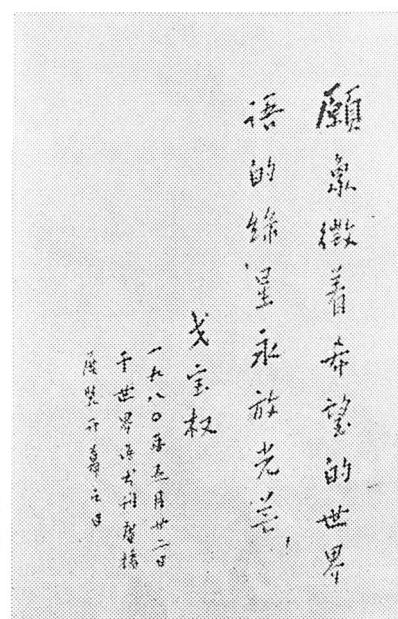 願象徵着希望的世界
语的绿星永放光芒！
戈宝权
一九八〇年五月廿二日
于世界语书刊
展覽开幕之日